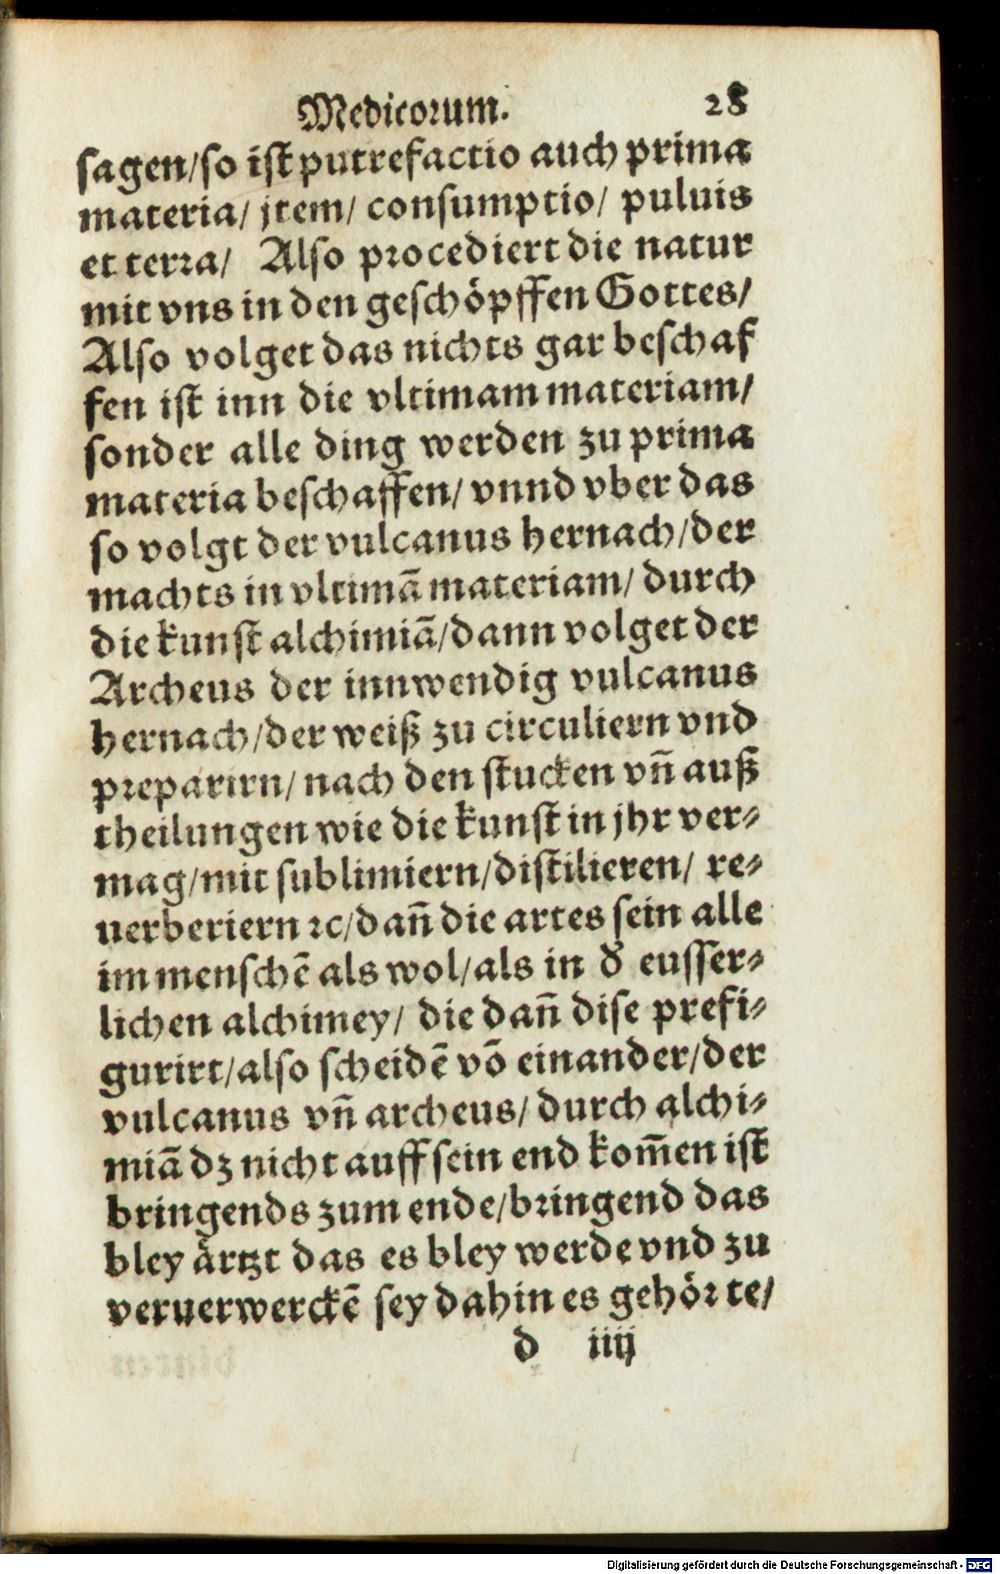 Medicorum. 28
sagen/so ist putrefactio auch prima
materia/ jtem/ consumptio/ puluis
et terra/ Also procediert die natur
mit vns in den geschöpffen Gottes/
Also volget das nichts gar beschaf
fen ist inn die vltimam materiam/
sonder alle ding werden zu prima
materia beschaffen/ vnnd vber das
so volgt der vulcanus hernach/der
machts in vltimā materiam/ durch
die kunst alchimiā/dann volget der
Archeus der innwendig vulcanus
hernach/der weiß zu circuliern vnd
preparirn/ nach den stucken vn̄ auß
theilungen wie die kunst in jhr ver⸗
mag/mit sublimiern/distilieren/ re⸗
uerberiern ꝛc/dan̄ die artes sein alle
im menschē als wol/als in d̾ eusser⸗
lichen alchimey/ die dan̄ dise prefi⸗
gurirt/also scheidē vō einander/der
vulcanus vn̄ archeus/ durch alchi⸗
miā dz nicht auff sein end kom̄en ist
bringends zum ende/bringend das
bley ärtzt das es bley werde vnd zu
veruerwerckē sey dahin es gehörte/
d iiij
Digitalisierung gefördert durch die Deutsche Forschungsgemeinschaft - DFG